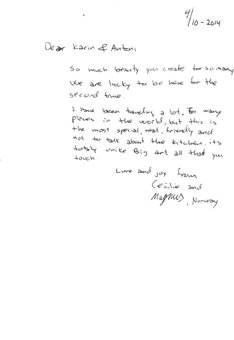 4/10-2014
Dear Karin of Antoni
So much beauty you create for so many
We are lucky to be here for the
second time
I have been traveling a lot, Too many
places in the world, but this is
the most special, real, friendly and
not to talk about the kitchen, its
totaly unike Big art all that you
touch
Love and joy from
Cecilie and
Magnus, Norway